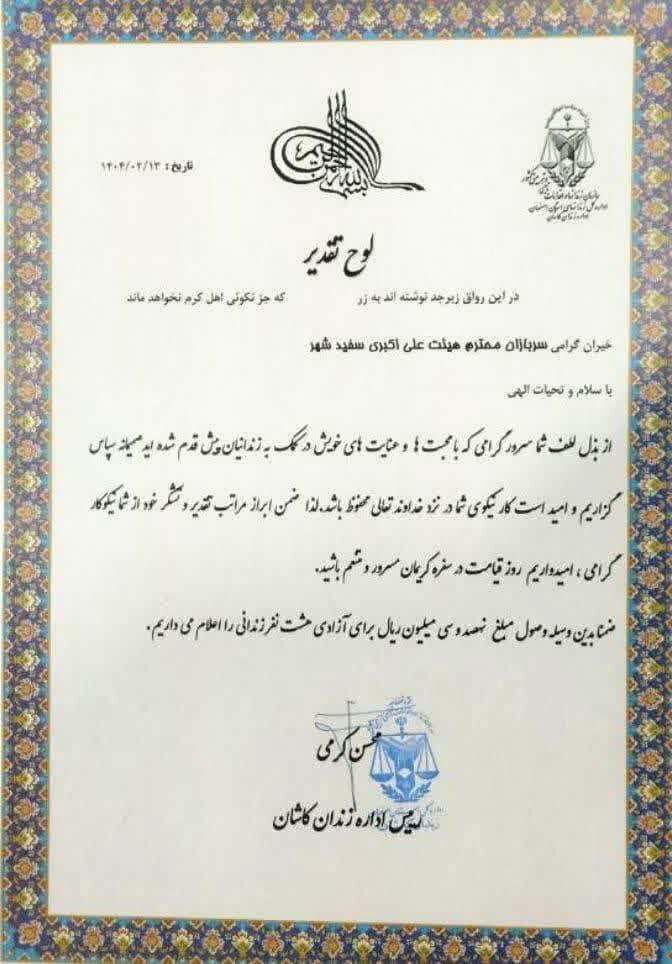 بسم الله الرحمن الرحیم
اداره کل زندانهای استان اصفهان
اداره زندان کاشان
تاریخ: ۱۴۰۴/۰۲/۱۳
لوح تقدیر
در این رواق زبرجد نوشته اند به زر که جز نکوئی اهل کرم نخواهد ماند
خیران گرامی سربازان محترم هیئت علی اکبری سفید شهر
با سلام و تحیات الهی
از بذل لطف شما سرور گرامی که با محبت ها و عنایت های خویش در کمک به زندانیان پیش قدم شده اید صمیمانه سپاس
گزاریم و امید است کار نیکوی شما در نزد خداوند تعالی محفوظ باشد. لذا ضمن ابراز مراتب تقدیر و تشکر خود از شما نیکوکار
گرامی ، امیدواریم روز قیامت در سفره کریمان مسرور و متنعم باشید.
ضمنا بدین وسیله وصول مبلغ نهصد و سی میلیون ریال برای آزادی هشت نفر زندانی را اعلام می داریم.
محسن کرمی
رئیس اداره زندان کاشان